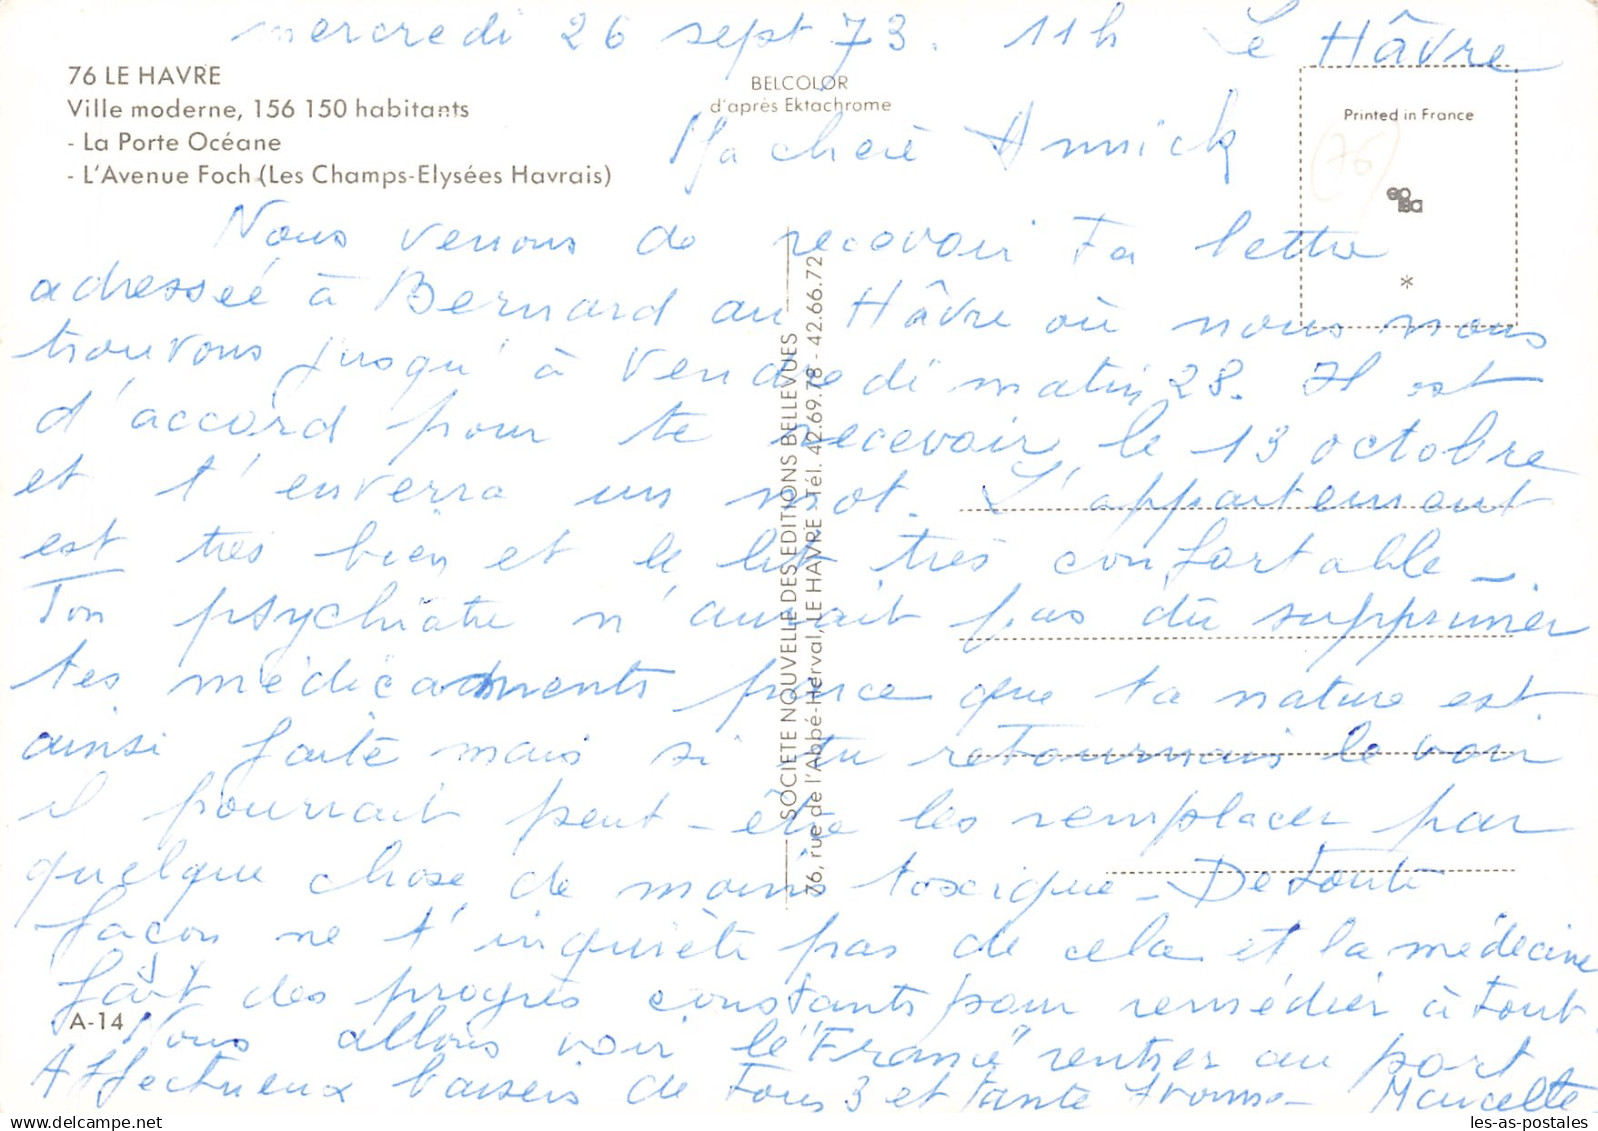 mercredi 26 sept 73. 11h Le Hâvre
76 LE HAVRE
Ville moderne, 156 150 habitants
- La Porte Océane
- L'Avenue Foch (Les Champs-Elysées Havrais)
BELCOLOR
d'après Ektachrome
Printed in France
(76)
*
Ma chère Annick
Nous venons de recevoir ta lettre
adressée à Bernard au Hâvre où nous nous
trouvons jusqu'à Vendredi matin 28. Il est
d'accord pour te recevoir le 13 octobre
et t'enverra un mot. L'appartement
est très bien et le lit très confortable -.
Ton psychiâtre n'aurait pas dû supprimer
tes médicaments parce que ta nature est
ainsi faite mais si tu retournais le voir
il pourrait peut-être les remplacer par
quelque chose de moins toxique - De toute
façon ne t'inquiète pas de cela et la médecine
fait des progrès constants pour remédier à tout.
Nous allons voir le "France" rentrer au port
Affectueux baisers de tous 3 et tante Yvonne - Marcelle
SOCIETE NOUVELLE DES EDITIONS BELLEVUES
76, rue de l'Abbé-Herval, LE HAVRE - Tél. 42.69.78 - 42.66.72
A-14
les-as-postales